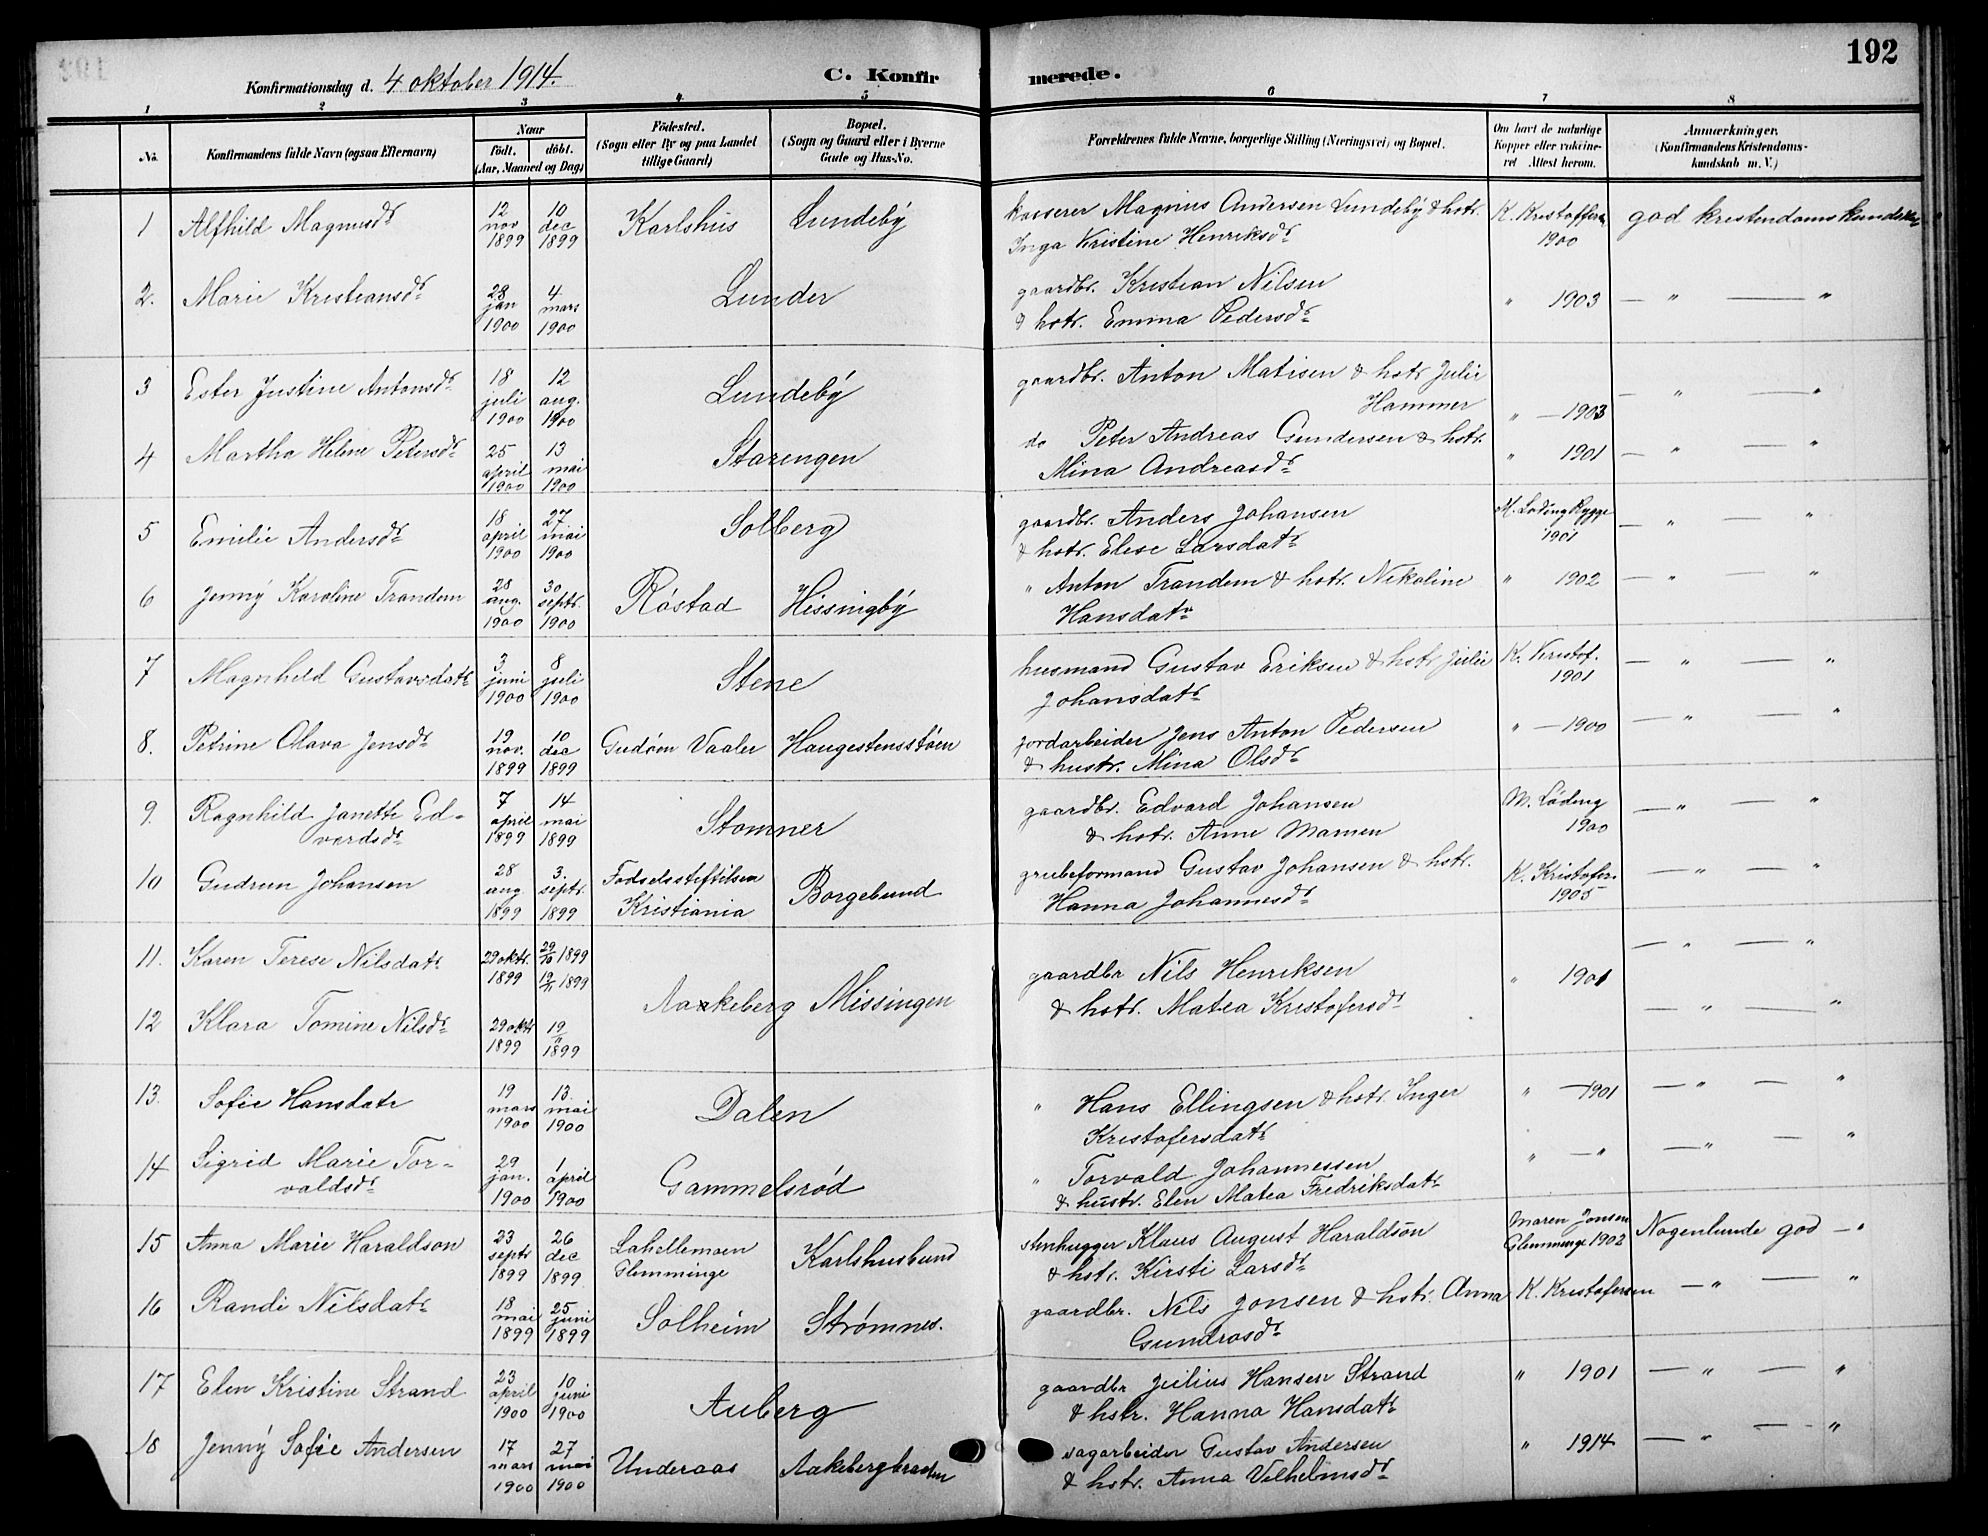 192
Konfirmationsdag d. 4 oktober 1914.
C. Konfirmerede.
1 2 3 4 5 6 7 8
No.
Konfirmandens fulde Navn (ogsaa Efternavn)
Naar
födt. döbt.
(Aar, Maaned og Dag)
Födested.
(Sogn eller By og paa Landet
tillige Gaard)
Bopæl.
(Sogn og Gaard eller i Byerne
Gade og Hus-No.
Forældrenes fulde Navne, borgerlige Stilling (Næringsvei) og Bopæl.
Om havt de naturlige
Kopper eller vakcine-
ret Attest herom.
Anmærkninger.
(Konfirmandens Kristendoms-
kundskab m. V.)
1 Alfhild Magnusdr 12 nov 1899 10 dec 1899 Karlshus Lundeby kasserer Magnus Andersen Lundeby & hstr. Inga Kristine Henriksdr K. Kristoffersen 1900 god kristendomskundskab
2. Marie Kristiansdr 28 jan 1900 4. mars 1900 Lunder gaardbr. Kristian Nilsen & hstr. Emma Pedersdr " 1903 — " — "
3 Ester Justine Antonsdr 18 juli 1900 12 aug. 1900 Lundeby gaardbr. Anton Matisen & hstr Julie Hammer " — 1903 — " — "
4 Martha Helene Petersdr 25 april 1900 13 mai 1900 Starengen do Peter Andreas Gundersen & hstr. Mina Andreasdr " 1901 — " — "
5 Emilie Andersdr 18 april 1900 27 mai 1900 Solberg gaardbr. Anders Johansen & hstr. Elise Larsdatr M. Löding Rygge 1901 — " — "
6 Jenny Karoline Trandem 28 aug. 1900 30 septr. 1900 Röstad Hissingby " Anton Trandem & hstr. Nikoline Hansdatr " 1902 — " — "
7 Magnhild Gustavsdatr 3 juni 1900 8 juli 1900 Stene husmand Gustav Eriksen & hstr Julie Johansdatr K. Kristof. 1901 — " — "
8. Petrine Olava Jensdr 19 nov. 1899 10 dec 1899 Gudöen Vaaler Haugestensstöen jordarbeider Jens Anton Pedersen & hustr. Mina Olsdr " — 1900 — " — "
9. Ragnhild Janette Edvardsdr 7 april 1899 14 mai 1899 Stomner gaardbr. Edvard Johansen & hstr. Anne Mamen M. Löding 1900 — " — "
10 Gudrun Johansen 28 aug 1899 3. septr. 1899 Fødselsstiftelsen Kristiania Borgebund grubeformand Gustav Johansen & hstr. Hanna Johannesdr K. Kristofer. 1905 — " — "
11. Karen Terese Nilsdatr 29 oktr. 1899 29/10 1899 19/11 1899 Aakeberg Missingen gaardbr Nils Henriksen & hstr. Matea Kristofersdr " 1901 — " — "
12 Klara Tomine Nilsdr 29 oktr 1899 19/11 1899 — " — "
13. Sofie Hansdatr 19 mars 1900 13. mai 1900 Dalen " Hans Ellingsen & hstr. Inger Kristofersdatr " — 1901 — " — "
14 Sigrid Marie Torvaldsdr 29 jan. 1900 1 april 1900 Gammelsröd " Torvald Johannessen & hustr. Elen Matea Fredriksdatr " — " — " — "
15 Anna Marie Haraldson 23 septr 1899 26 dec 1899 Lahellemoen Glemminge Karlshusbund stenhugger Klaus August Haraldson & hstr. Kirsti Larsdr Maren Jonsen Glemminge 1902 Nogenlunde god — "
16 Randi Nilsdatr 18 mai 1899 25 juni 1899 Solheim Strømnes. gaardbr. Nils Jonsen & hstr. Anna Gundrosdr K. Kristofersen — " — "
17 Elen Kristine Strand 23 april 1900 10 juni 1900 Auberg gaardbr Julius Hansen Strand & hstr. Hanna Hansdatr " 1901 — " — "
18 Jenny Sofie Andersen 17 mars 1900 27 mai 1900 Underaas Aakebergbraaten sagarbeider Gustav Andersen & hstr. Anna Vilhelmsdr " 1914 — " — "